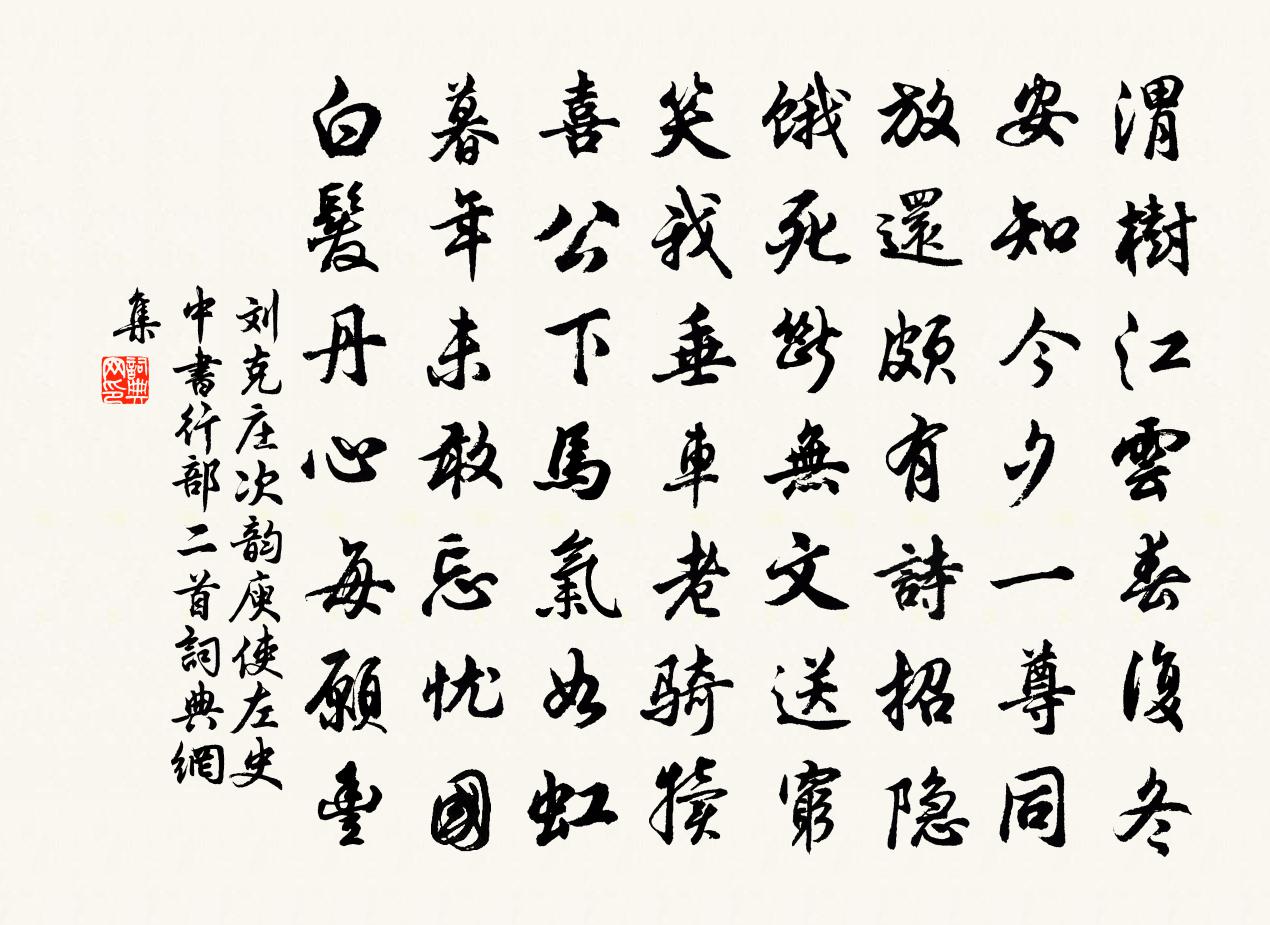 渭樹江雲春復冬
安知今夕一尊同
放還頗有詩招隐
饿死斷無文送窮
笑我垂車老骑犊
喜公下馬氣如虹
暮年未敢忘忧國
白髮丹心每願豊
刘克庄次韵庾使左史
中書行部二首詞典網
集
詞典
网印